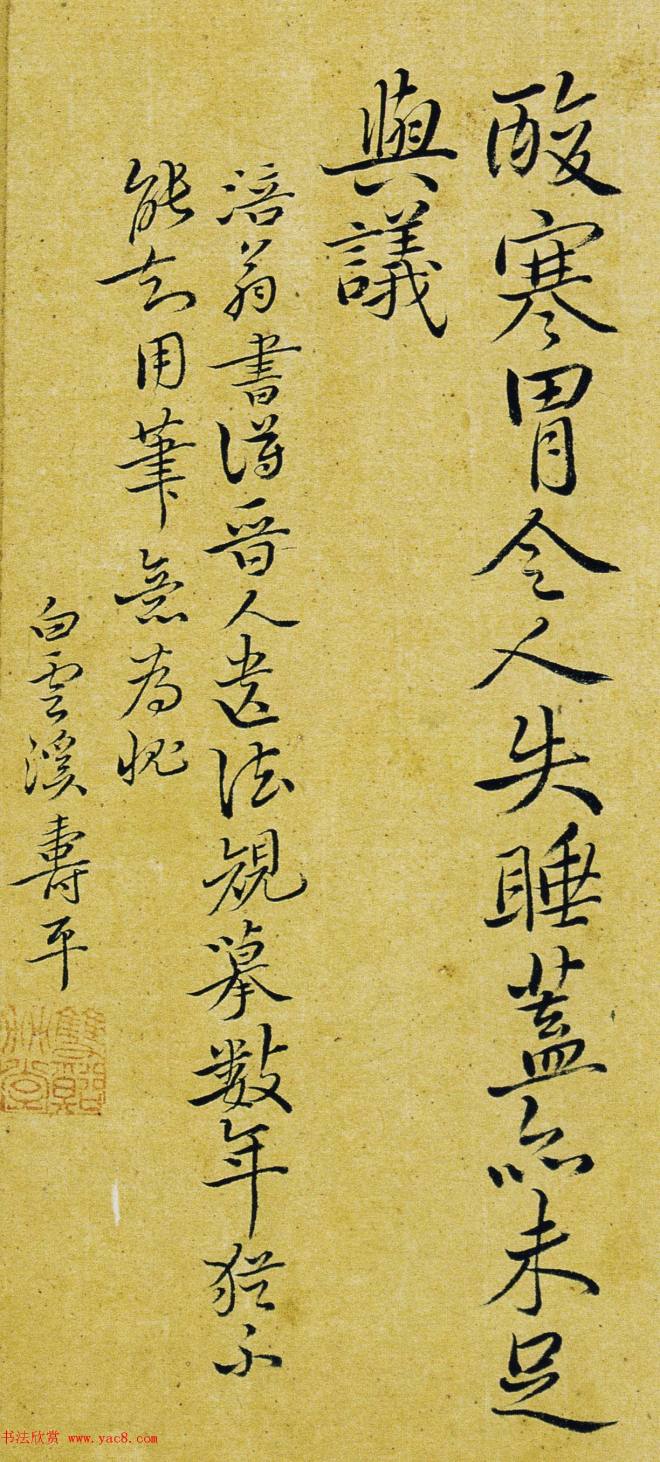 酸寒胃令人失睡蓋亦未足
與議
涪翁書得晉人遺法規摹數年猶不
能知用筆意為愧
白雲溪壽平
书法欣赏 www.yac8.com